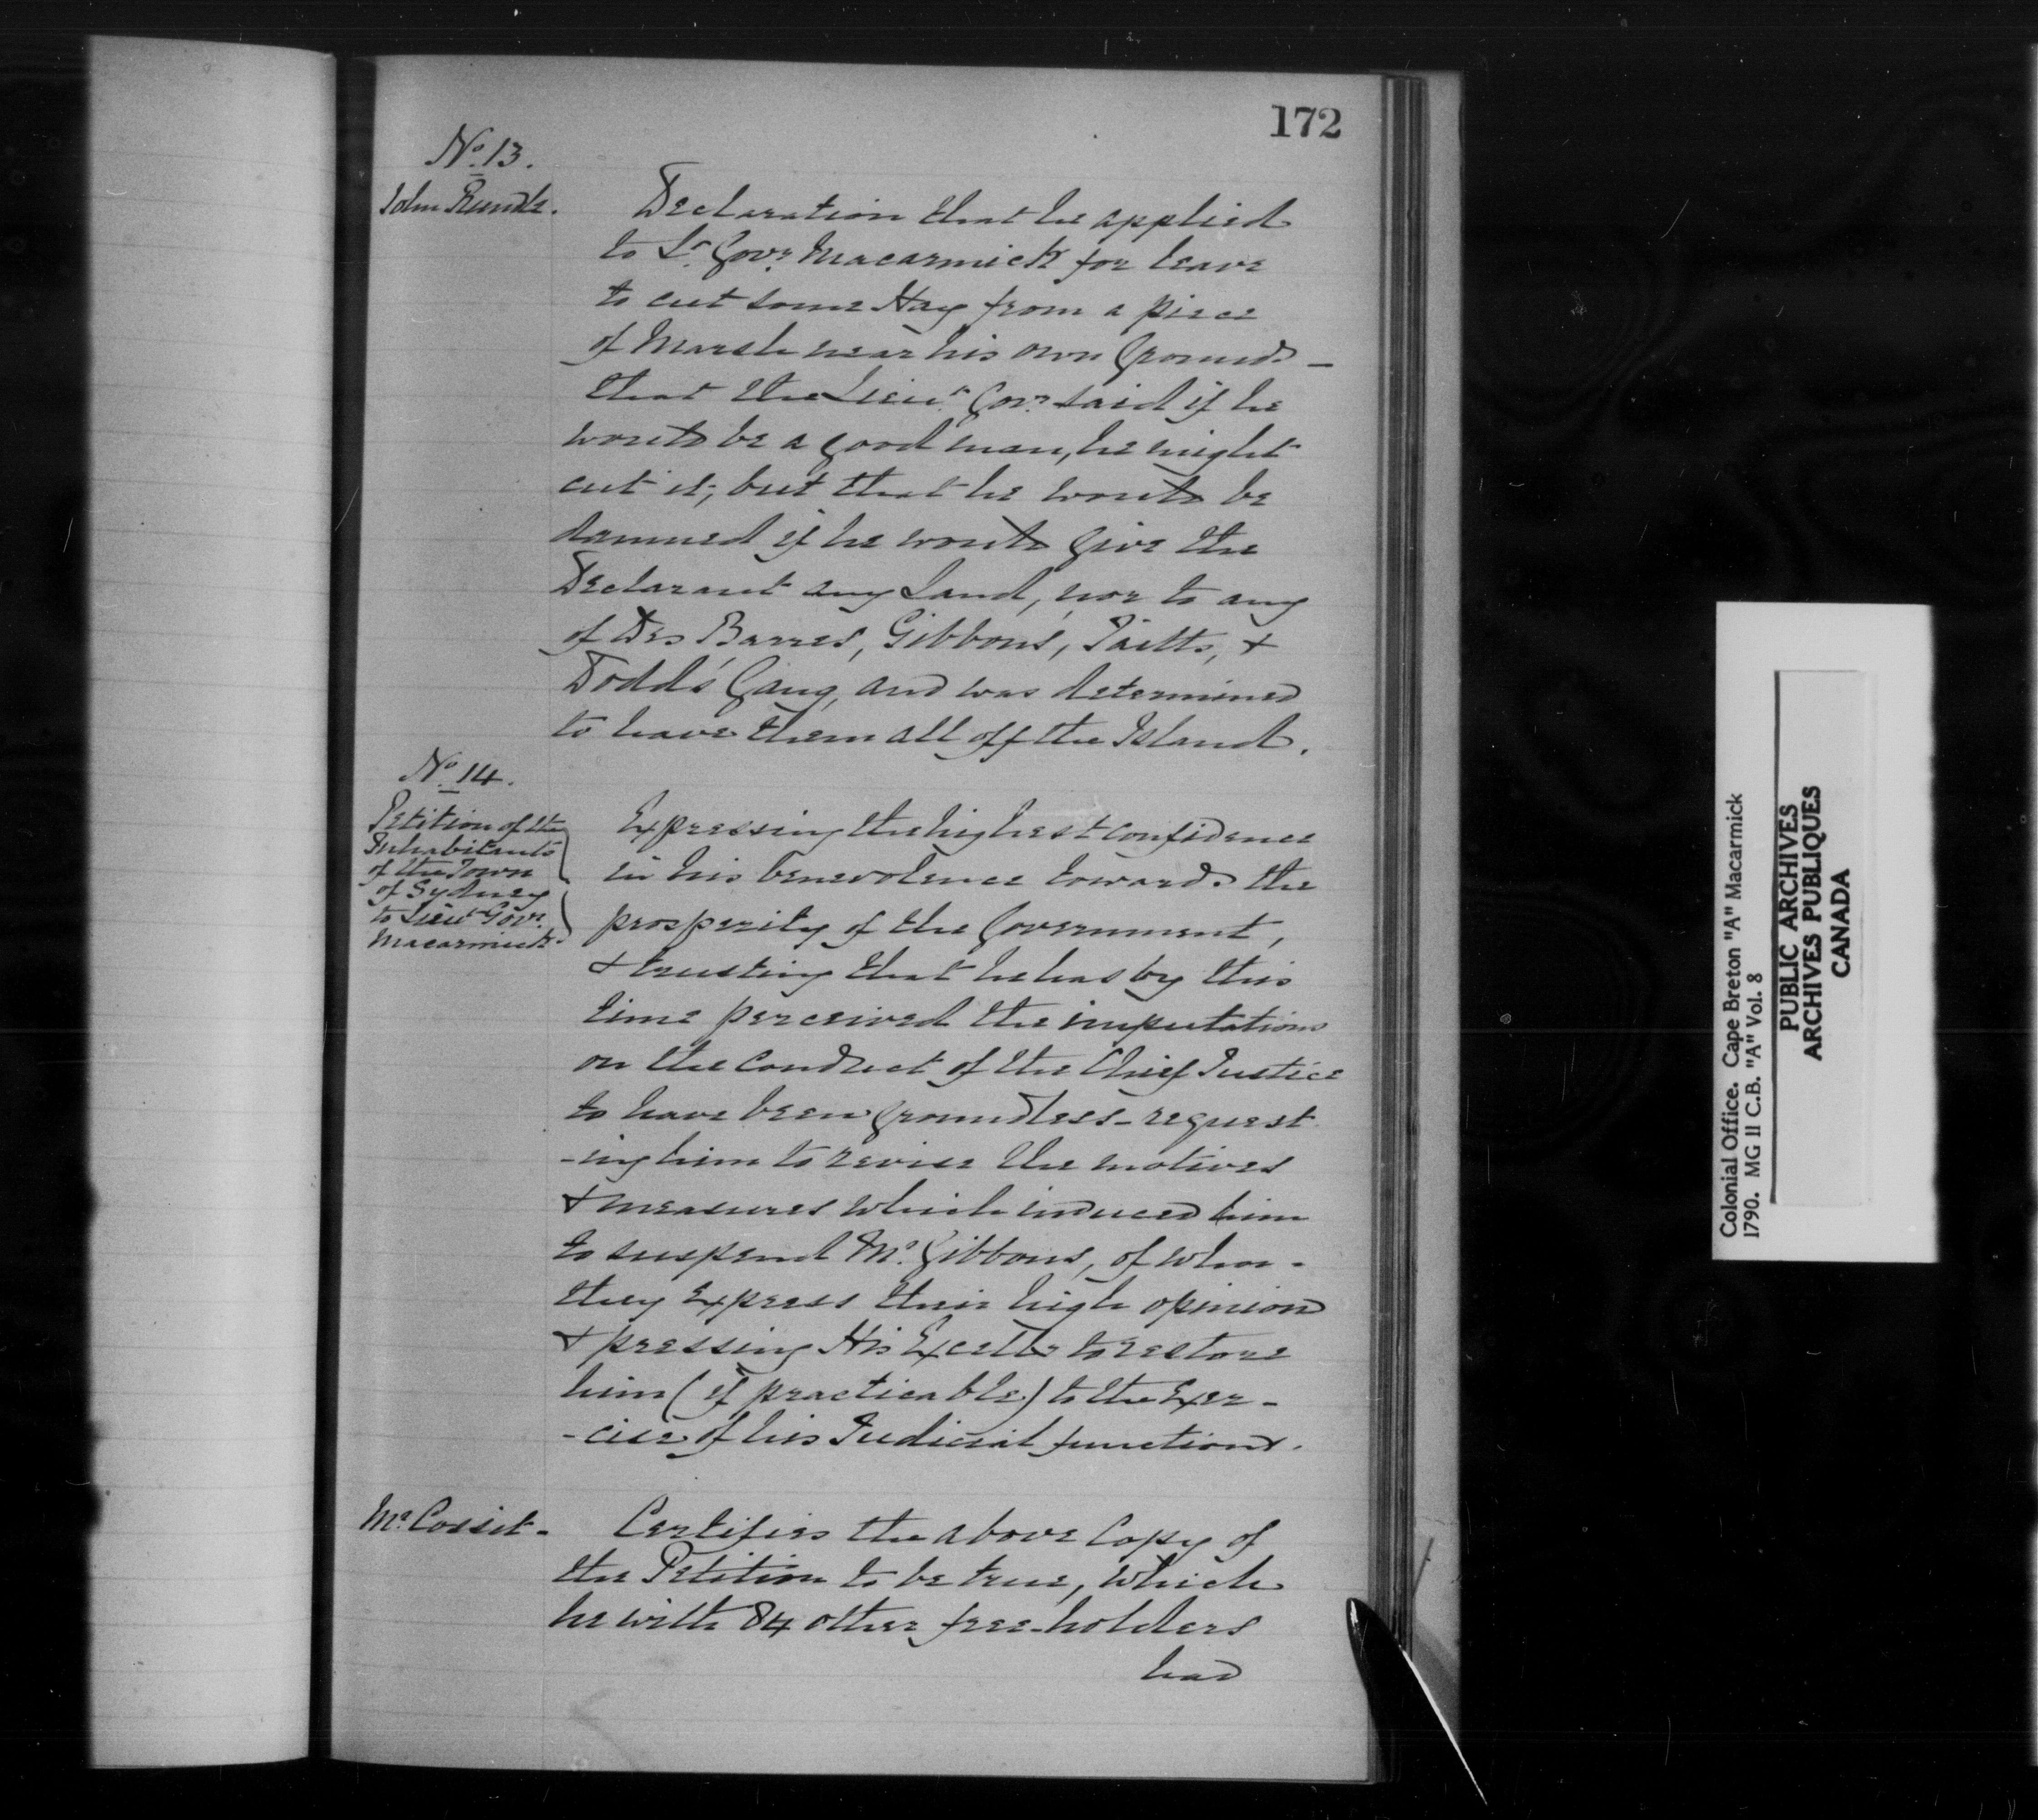 172
No. 13.
John Rundle.
Declaration that he applied
to Lt. Govr. Macarmick for leave
to cut some Hay from a piece
of Marsh near his own Grounds —
that the Lieut. Govr. said if he
would be a good man, he might
cut it; but that he would be
damned if he would give the
Declarant any Land, nor to any
of Des Barres, Gibbons, Taitts, &
Dodd's Gang, and was determined
to have them all off the Island.
No. 14.
Petition of the
Inhabitants
of the Town
of Sydney
to Lieut. Govr.
Macarmick.
Expressing the highest confidence
in his benevolence towards the
prosperity of the Government,
& trusting that he has by this
time perceived the imputations
on the conduct of the Chief Justice
to have been groundless - request
-ing him to revise the motives
& measures which induced him
to suspend Mr. Gibbons, of whom
they express their high opinion
& pressing His Excelly to restore
him (if practicable) to the Exer-
-cise of his Judicial functions.
Mr. Cossit -
Certifies the above Copy of
the Petition to be true, which
he with 84 other free-holders
had
Colonial Office. Cape Breton "A" Macarmick
1790. MG 11 C.B. "A" Vol. 8
PUBLIC ARCHIVES
ARCHIVES PUBLIQUES
CANADA